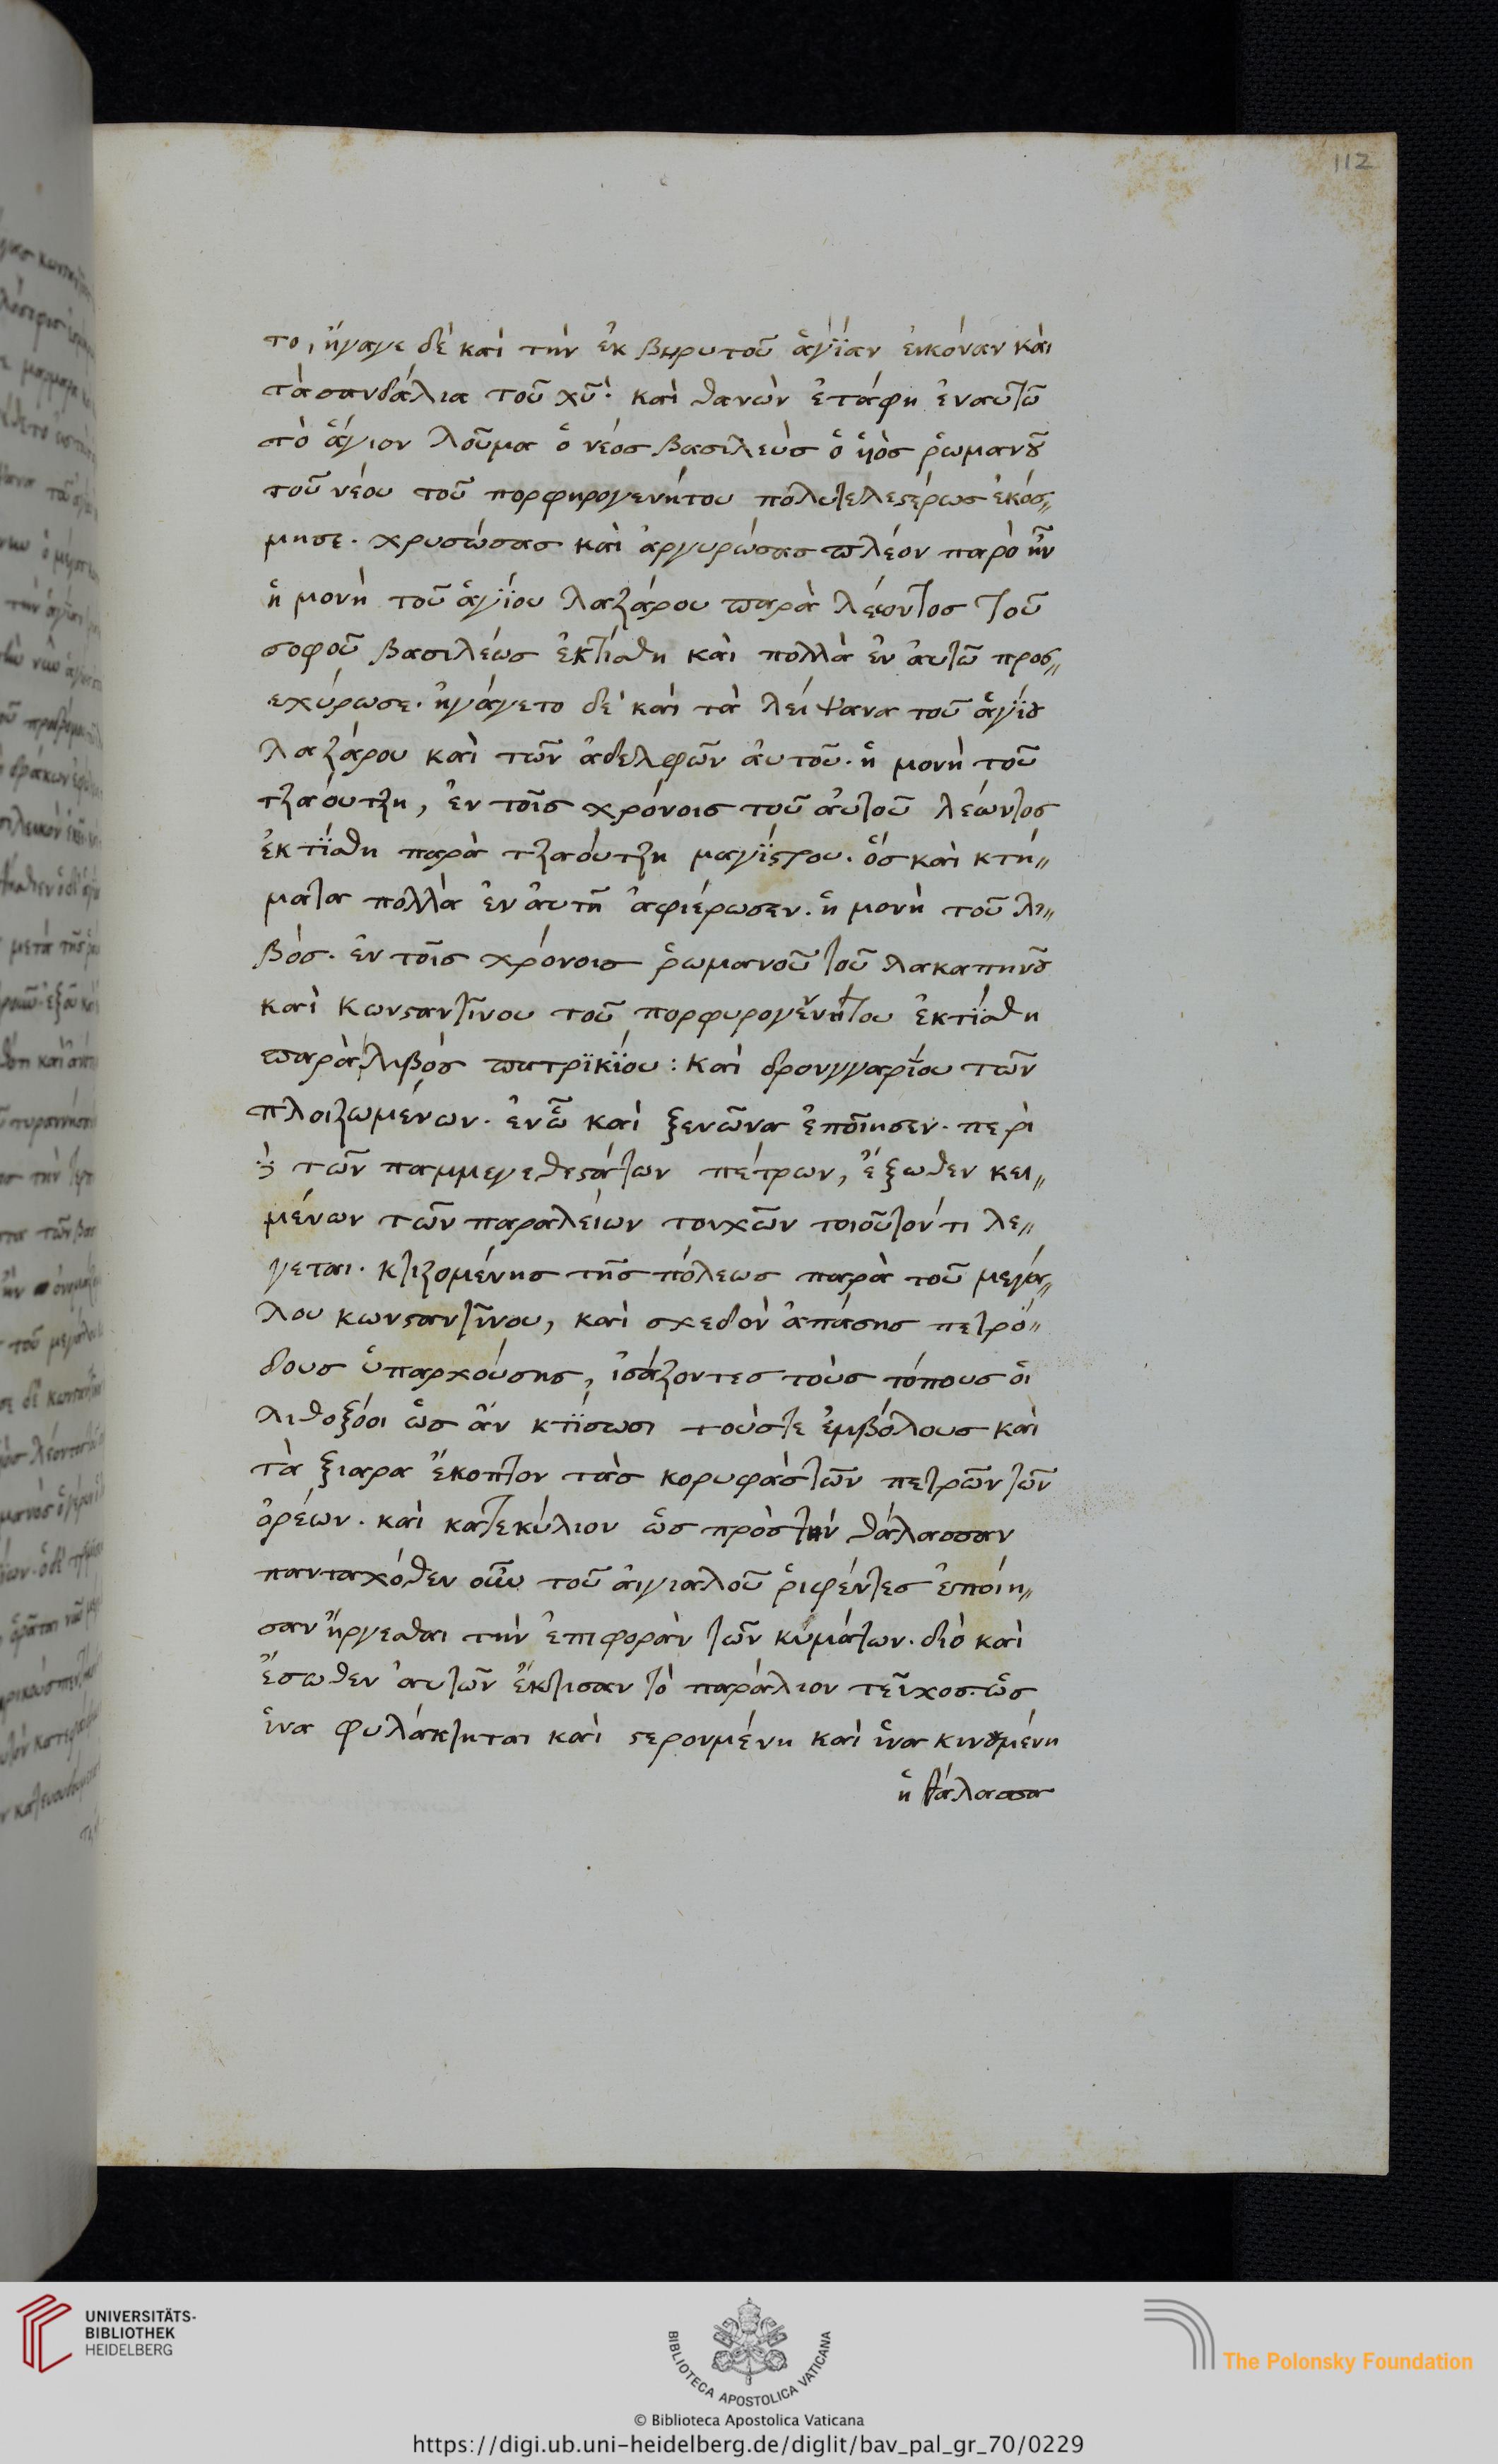 112
το, ἤγαγε δὲ καὶ τὴν ἐκ βηρυτοῦ ἁγΐαν εικόναν καὶ
τὰ σανδάλια τοῦ χῦ· καὶ θανὼν ἐτάφη ἐναυτῶ
τὸ ἅγιον λοῦμα ὁ νέος βασϊλεὺς ὁ ϋὸς ῥωμανȣ͂
τοῦ νέου τοῦ πορφηρογενήτου πολυτελεϛέρως ἐκόσ〃
μησε. χρυσώσας καὶ ἀργυρώσας πλέον παρὸ ἦν
ἡ μονὴ τοῦ ἁγΐου λαζάρου παρὰ λέοντος τοῦ
σοφοῦ βασιλέως ἐκτίσθη καὶ πολλὰ ἐν ἀυτῶ προσ〃
εχύρωσε. ἠγάγετο δὲ καὶ τὰ λείψανα τοῦ ἁγΐȣ
λαζάρου καὶ τῶν ἀδελφῶν ἀυτοῦ. ἡ μονὴ τοῦ
τζαόυτζη, ἐν τοῖς χρόνοις τοῦ ἀυτοῦ λεώντος
ἐκτΐσθη παρὰ τζαόυτζη μαγΐϛρου. ὅς καὶ κτή〃
ματα πολλὰ ἐν ἀυτῆ ἀφιέρωσεν. ἡ μονὴ τοῦ λι〃
βός. ἐν τοῖς χρόνοις ῥωμανοῦ τοῦ λακαπηνȣ͂
καὶ κωνϛαντῖνου τοῦ πορφυρογενήτου ἐκτΐσθη
παρὰ λιβὸς πατρϊκΐου: καὶ δρουγγαρΐου τῶν
πλοιζωμένων. ἐνῶ καὶ ξενῶνα ἐποῖησεν. περὶ
τῶν παμμεγεθεϛάτων πέτρων, ἔξωθεν κει〃
μένων τῶν παραλείων τοιχῶν τοιοῦτόν τι λέ〃
γεται. κτιζομένης τῆς πόλεως παρὰ τοῦ μεγά〃
λου κωνϛαντῖνου, καὶ σχεδὸν ἁπάσης πετρό〃
δους ὑπαρχούσης, ἰσάζοντες τοὺς τόπους ὁι
λιθοξόοι ὡς ἂν κτΐσωσι τούστε ἐμβόλους καὶ
τὰ ξιαρα ἔκοπτον τὰς κορυφάς τῶν πετρῶν τῶν
ὀρέων. καὶ κατεκύλιον ὡς πρὸς τὴν θάλασσαν
πανταχόθεν οὖν τοῦ ἀιγιαλοῦ ῥιφέντες ἐποίη〃
σαν ἤργεσθαι τὴν ἐπιφορὰν τῶν κυμάτων. διὸ καὶ
ἔσωθεν ἀυτῶν ἔκτισαν τὸ παράλιον τεῖχος. ὡς
ἵνα φυλάκτηται καὶ ϛερουμένη καὶ ἵνα κινȣμένη
ἡ θάλασσα
UNIVERSITÄTS-
BIBLIOTHEK
HEIDELBERG
BIBLIOTECA APOSTOLICA VATICANA
© Biblioteca Apostolica Vaticana
The Polonsky Foundation
https://digi.ub.uni-heidelberg.de/diglit/bav_pal_gr_70/0229